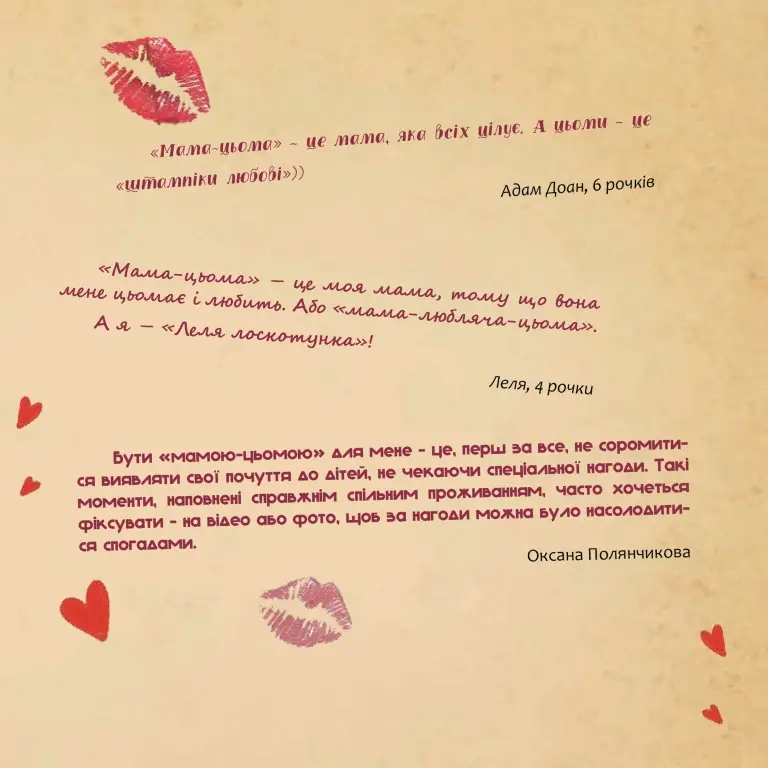 «Мама-цьома» – це мама, яка всіх цілує. А цьоми – це
«штампіки любові»))
Адам Доан, 6 рочків
«Мама-цьома» – це моя мама, тому що вона
мене цьомає і любить. Або «мама-любляча-цьома».
А я – «Леля лоскотунка»!
Леля, 4 рочки
Бути «мамою-цьомою» для мене – це, перш за все, не соромити-
ся виявляти свої почуття до дітей, не чекаючи спеціальної нагоди. Такі
моменти, наповнені справжнім спільним проживанням, часто хочеться
фіксувати – на відео або фото, щоб за нагоди можна було насолодити-
ся спогадами.
Оксана Полянчикова